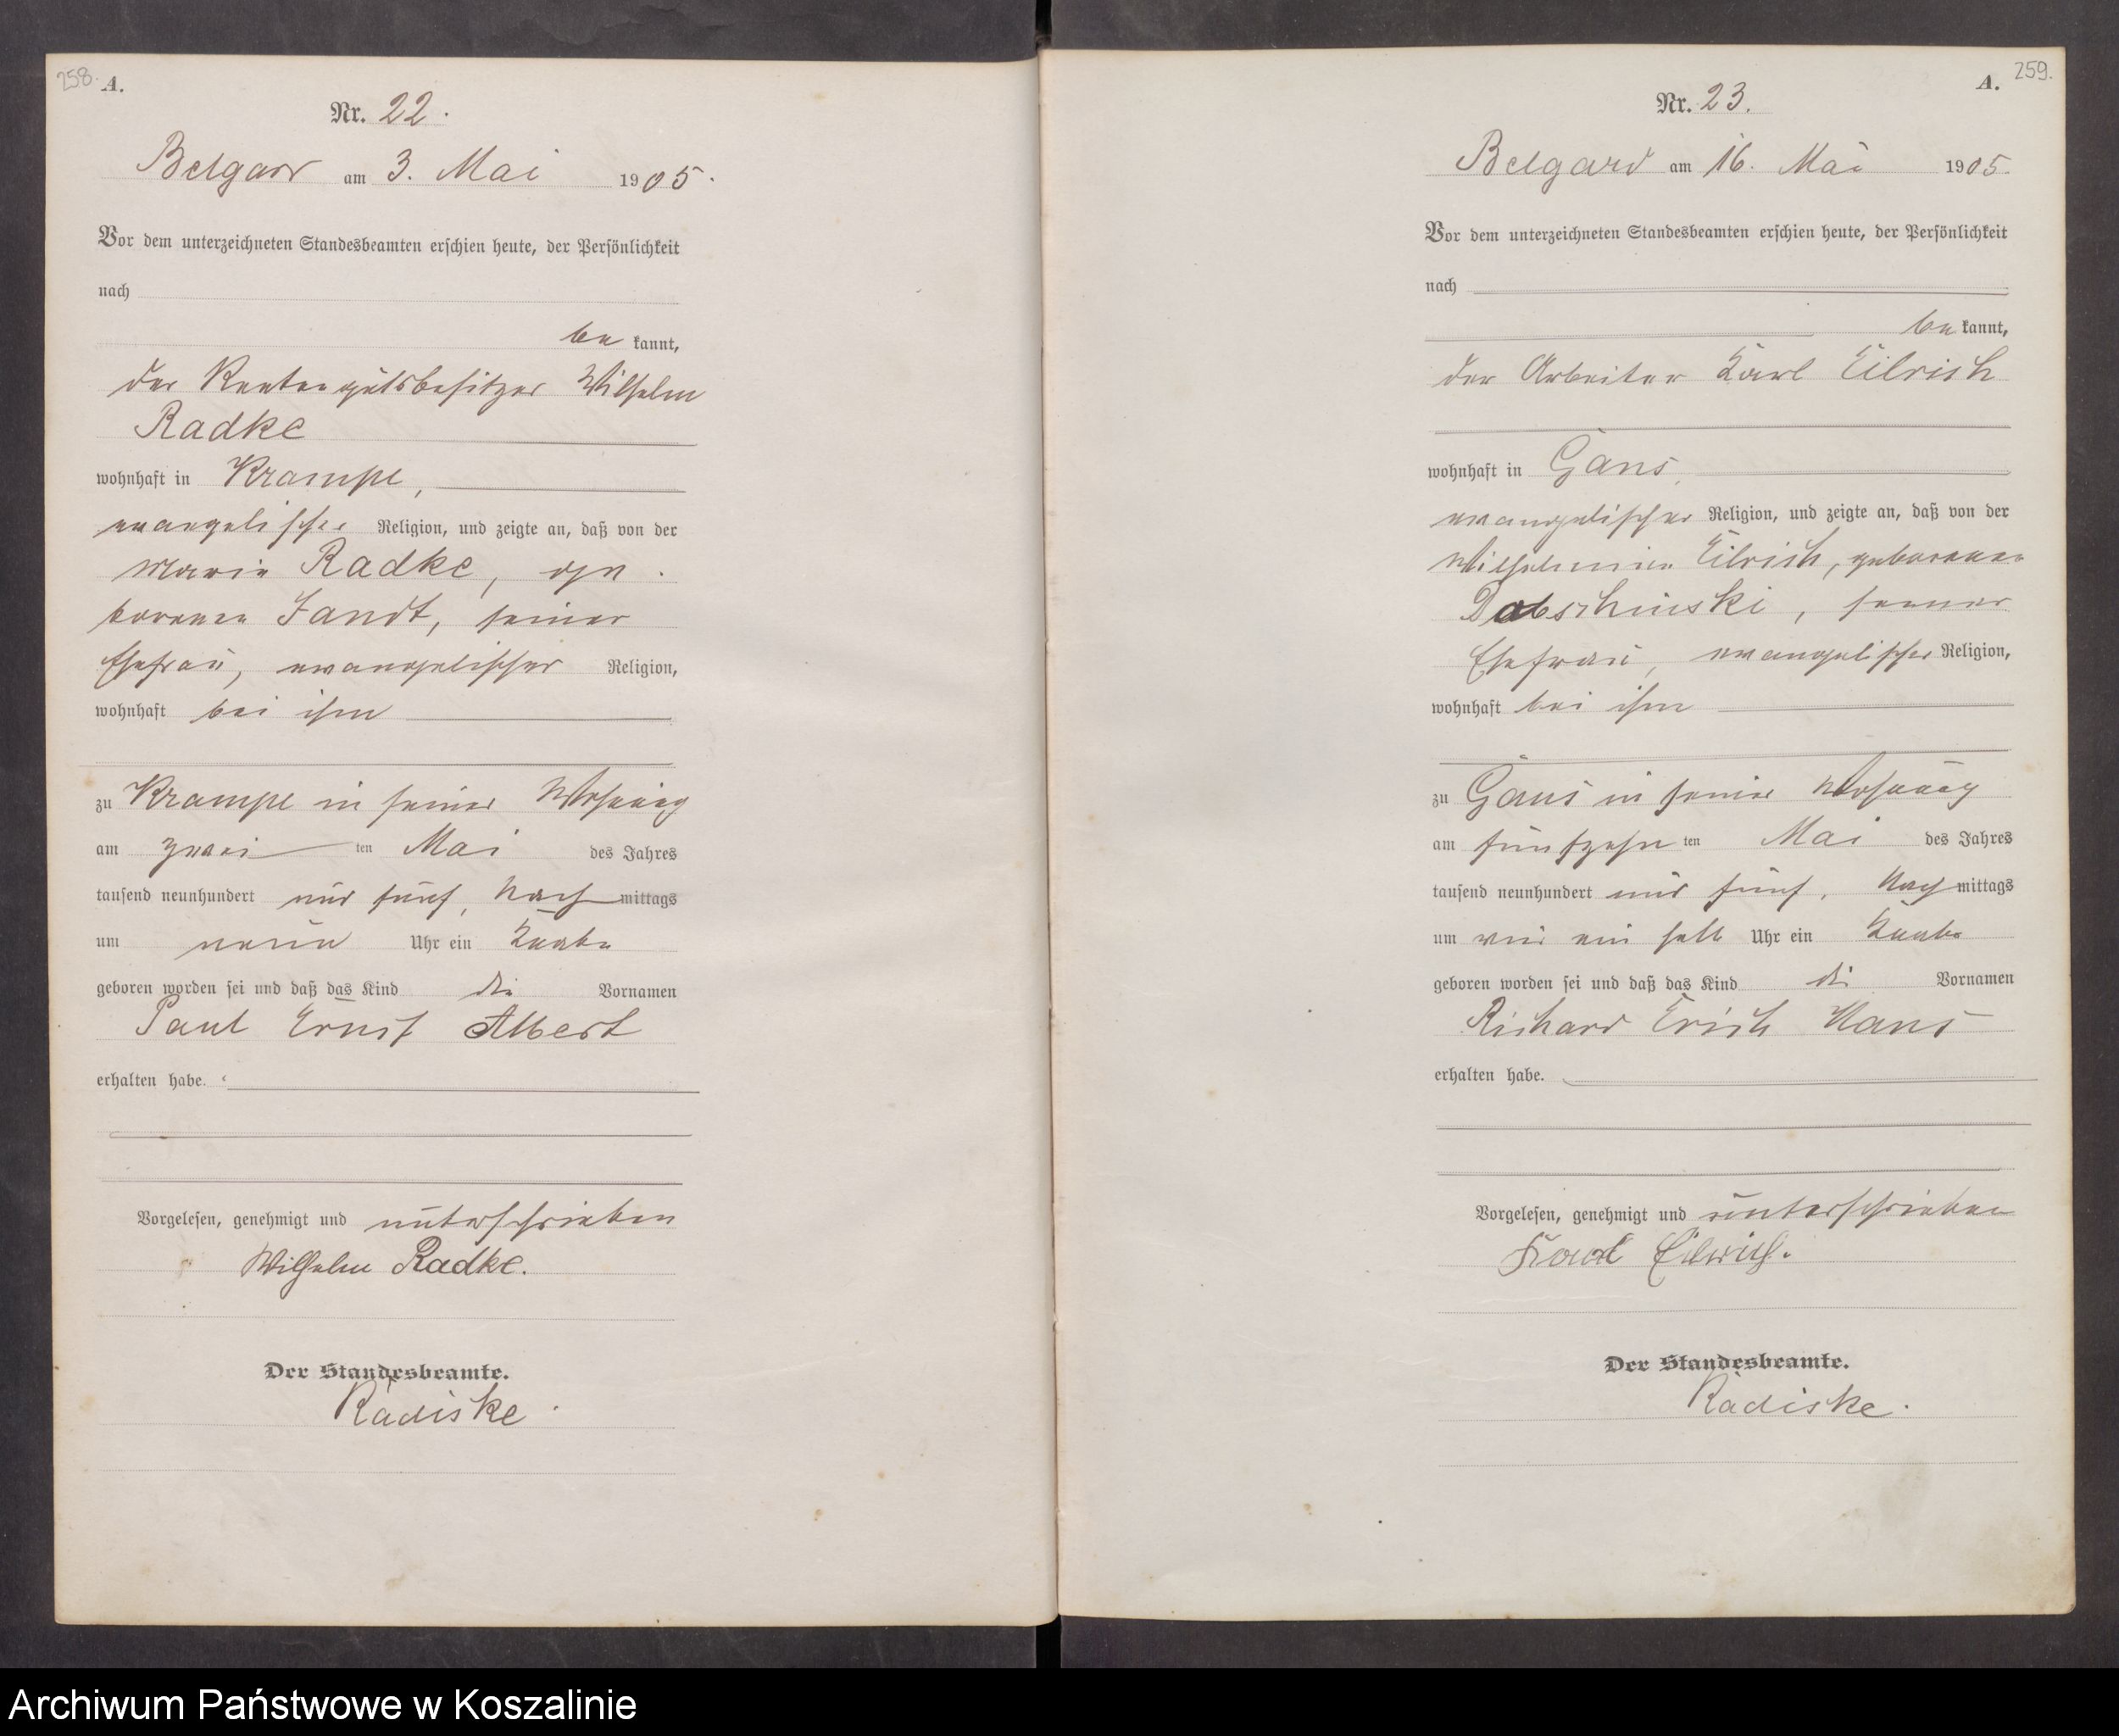 258.
A.
Nr. 22.
Belgard am 3. Mai 1905.
Vor dem unterzeichneten Standesbeamten erschien heute, der Persönlichkeit
nach
be kannt,
der Rentengutsbesitzer Wilhelm
Radke
wohnhaft in Krampe,
evangelischer Religion, und zeigte an, daß von der
Marie Radke, ge-
borenen Jandt, seiner
Ehefrau, evangelischer Religion,
wohnhaft bei ihm
zu Krampe in seiner Wohnung
am zwei ten Mai des Jahres
tausend neunhundert und fünf, Nach mittags
um neun Uhr ein Knabe
geboren worden sei und daß das Kind die Vornamen
Paul Ernst Albert
erhalten habe.
Vorgelesen, genehmigt und unterschrieben
Wilhelm Radke.
Der Standesbeamte.
Radiske.
259.
A.
Nr. 23.
Belgard am 16. Mai 1905.
Vor dem unterzeichneten Standesbeamten erschien heute, der Persönlichkeit
nach
be kannt,
der Arbeiter Karl Eilrich
wohnhaft in Gans,
evangelischer Religion, und zeigte an, daß von der
Wilhelmine Eilrich, geborenen
Dabschinski, seiner
Ehefrau, evangelischer Religion,
wohnhaft bei ihm
zu Gans in seiner Wohnung
am fünfzehn ten Mai des Jahres
tausend neunhundert und fünf, Nach mittags
um ein halb Uhr ein Knabe
geboren worden sei und daß das Kind die Vornamen
Richard Erich Hans
erhalten habe.
Vorgelesen, genehmigt und unterschrieben
Karl Eilrich.
Der Standesbeamte.
Radiske.
Archiwum Państwowe w Koszalinie